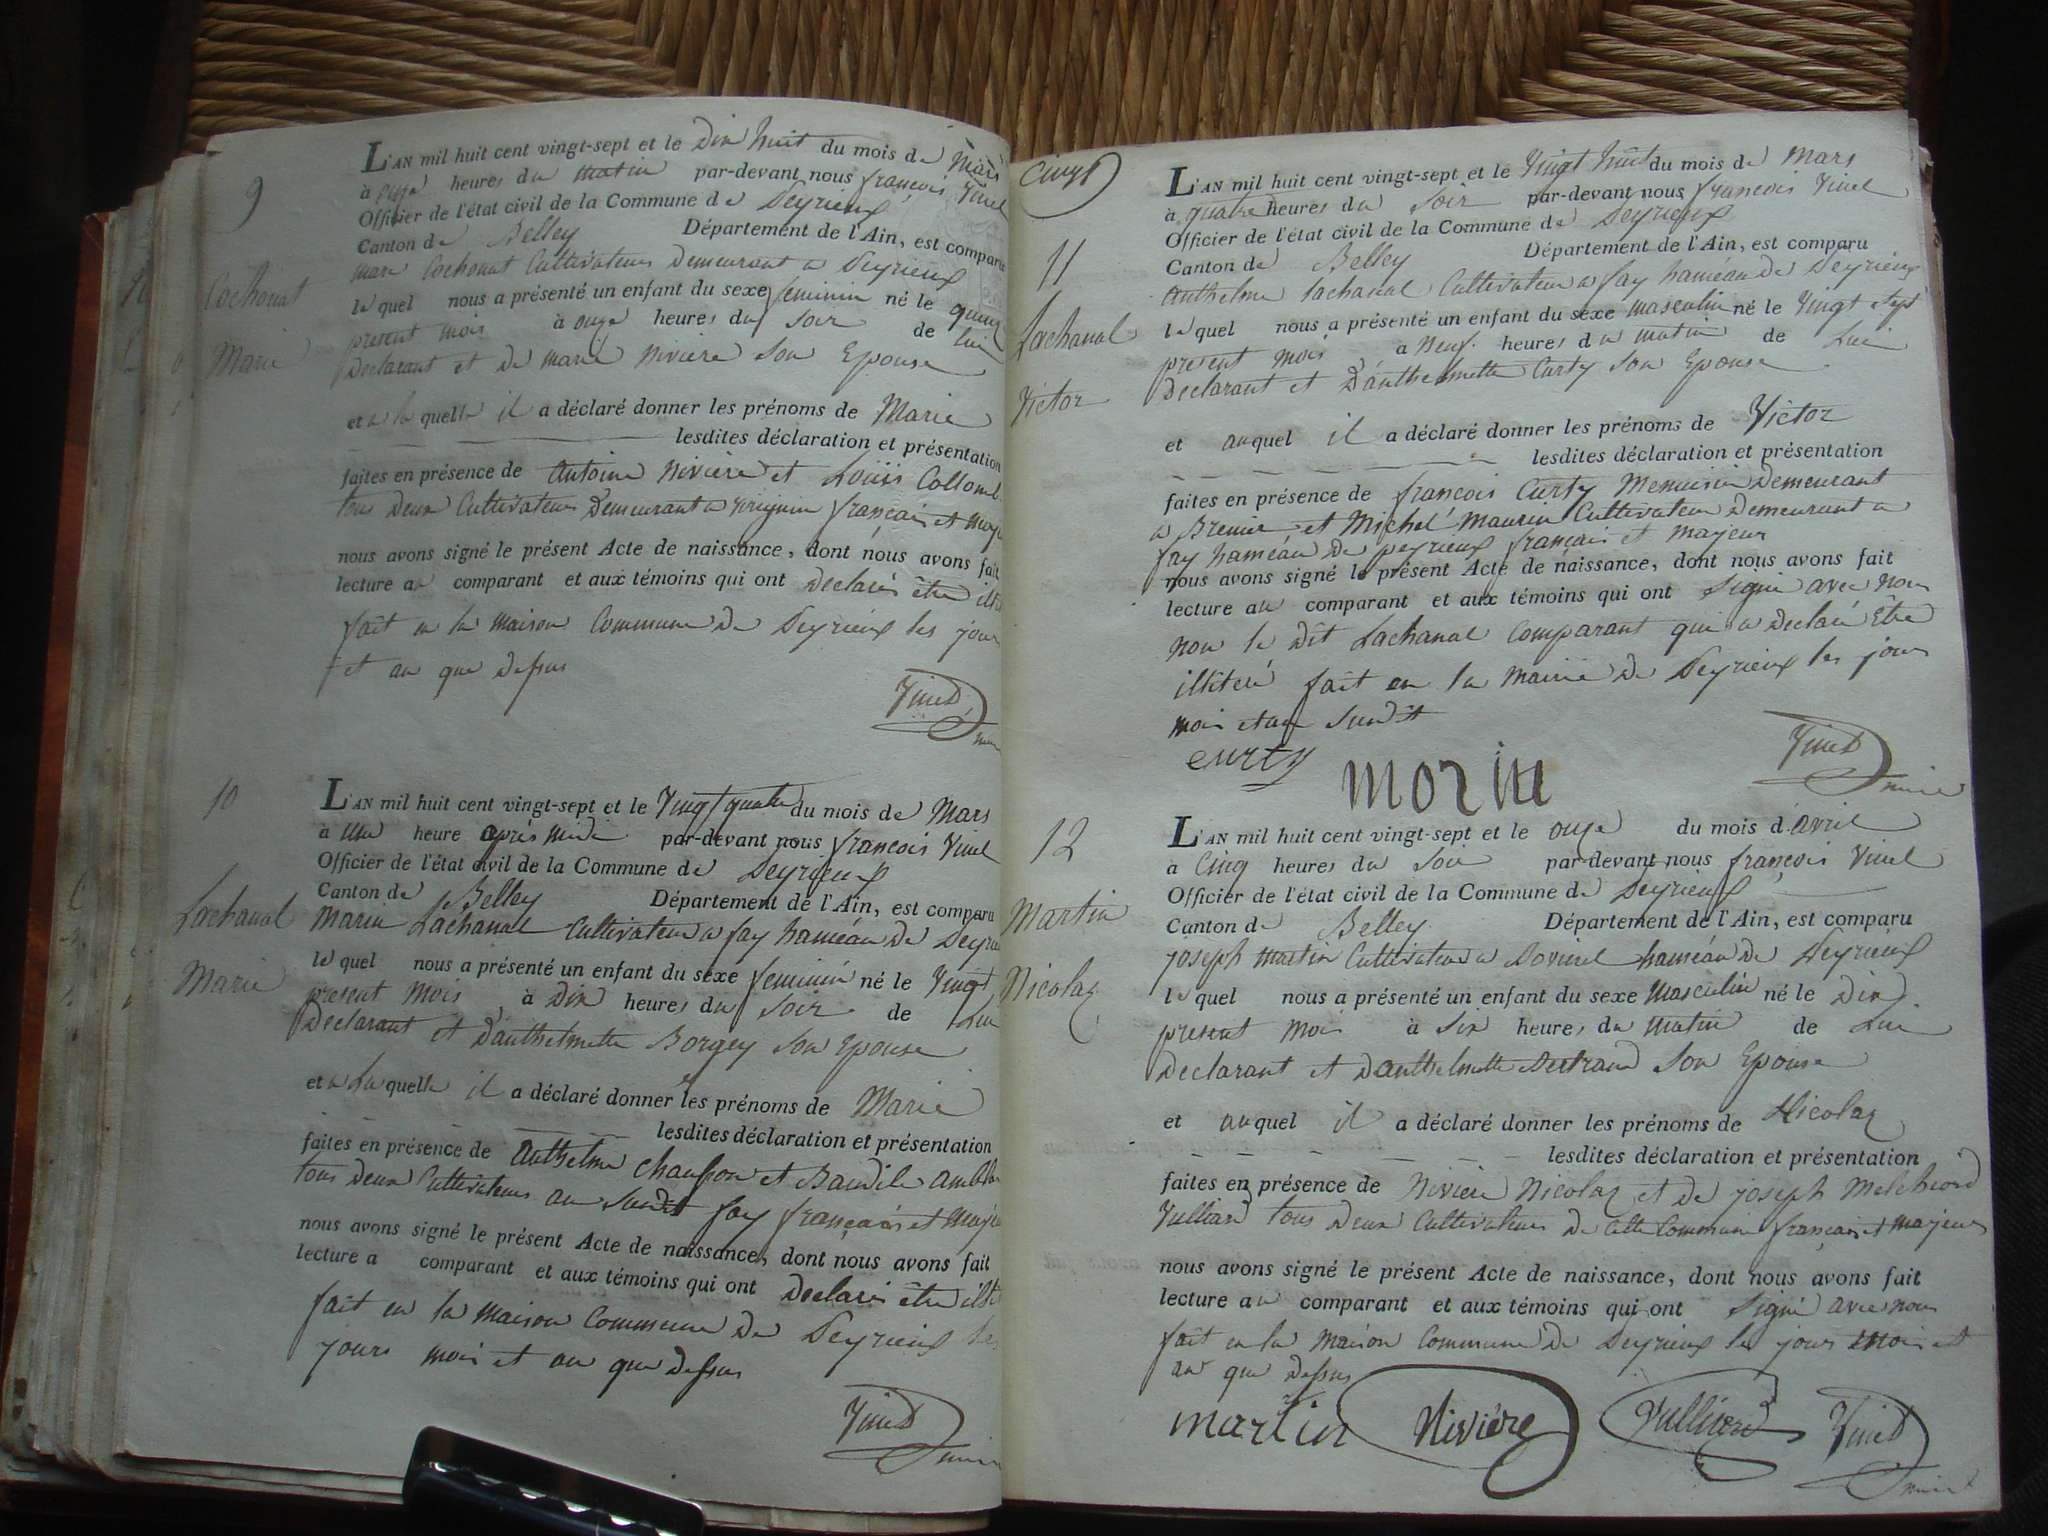 9
Cochonat
Marie
L'AN mil huit cent vingt-sept et le Dix huit du mois de Mars
à onze heures du matin par-devant nous françois Vinel
Officier de l'état civil de la Commune de Peyrieux
Canton de Belley Département de l'Ain, est comparu
marc Cochonat Cultivateur Demeurant a Peyrieux
lequel nous a présenté un enfant du sexe feminin né le quinze
present mois à onze heures du soir de lui
Declarant et de marie Niviere son Epouse
et a la quelle il a déclaré donner les prénoms de Marie
lesdites déclaration et présentation
faites en présence de antoine Niviere et Louis Collomb
tous deux Cultivateurs Demeurant a français et
nous avons signé le présent Acte de naissance, dont nous avons fait
lecture au comparant et aux témoins qui ont Declarés être
fait en la maison Commune De Peyrieux les jour
et an que dessus
Vinel
10
Lachanal
Marie
L'AN mil huit cent vingt-sept et le Vingt quatre du mois de Mars
à une heure après midi par-devant nous françois Vinel
Officier de l'état civil de la Commune de Peyrieux
Canton de Belley Département de l'Ain, est comparu
Marin Lachanal Cultivateur a fay haméau De
lequel nous a présenté un enfant du sexe feminin né le Vingt
present mois à Dix heures du soir de Lui
Declarant et D'anthelmette Borgey son Epouse
et a La quelle il a déclaré donner les prénoms de Marie
lesdites déclaration et présentation
faites en présence de Anthelme et
tous deux Cultivateurs au susdit fay français et
nous avons signé le présent Acte de naissance, dont nous avons fait
lecture a comparant et aux témoins qui ont Declarés être
fait en la maison Commune De Peyrieux les
jours mois et an que dessus
Vinel
maire
Cinq
11
Lachanal
Victor
L'AN mil huit cent vingt-sept et le Vingt huit du mois de Mars
à quatre heures du Soir par-devant nous françois Vinel
Officier de l'état civil de la Commune de Peyrieux
Canton de Belley Département de l'Ain, est comparu
Anthelme Lachanal Cultivateur a fay haméau De Peyrieux
lequel nous a présenté un enfant du sexe masculin né le Vingt Sept
present mois à Neuf heures du matin de Lui
Declarant et D'anthelmette Curty son Epouse
et auquel il a déclaré donner les prénoms de Victor
lesdites déclaration et présentation
faites en présence de françois Curty Menuisier Demeurant
a et Michel Maurin Cultivateur Demeurant a
fay haméau De peyrieux français et majeur
nous avons signé le présent Acte de naissance, dont nous avons fait
lecture au comparant et aux témoins qui ont Signé avec nous
non le dit Lachanal Comparant qui a Declaré Etre
illiteré fait en la Mairie De Peyrieux les jours
mois et an susdit
curty
morin
Vinel
maire
12
Martin
Nicolaz
L'AN mil huit cent vingt-sept et le onze du mois d'avril
à Cinq heures du Soir par-devant nous françois Vinel
Officier de l'état civil de la Commune de Peyrieux
Canton de Belley Département de l'Ain, est comparu
joseph martin Cultivateur a haméau De Peyrieux
lequel nous a présenté un enfant du sexe Masculin né le Dix
present mois à Six heures du matin de Lui
Declarant et D'anthelmette Bertrand son Epouse
et auquel il a déclaré donner les prénoms de Nicolaz
lesdites déclaration et présentation
faites en présence de Niviere Nicolaz et de joseph Melchiord
Vulliard tous deux Cultivateurs De cette Commune français et majeurs
nous avons signé le présent Acte de naissance, dont nous avons fait
lecture au comparant et aux témoins qui ont Signé avec nous
fait en la Maison Commune De Peyrieux les jours mois et
an que dessus
martin
Niviére
Vulliерd
Vinel
maire